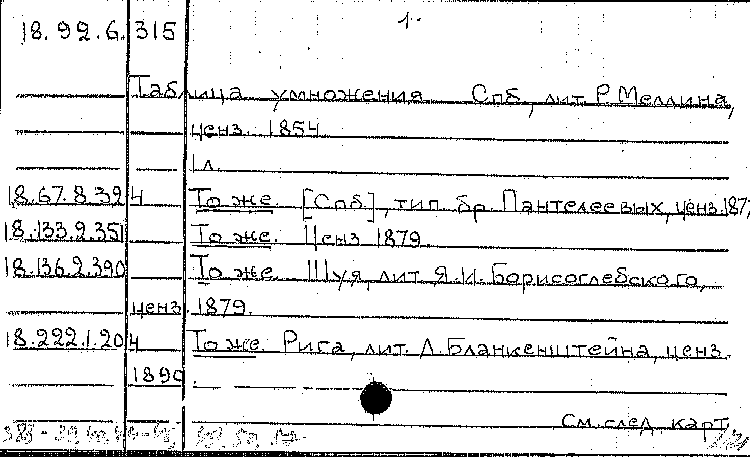 1.
18.92.6.315
Таблица умножения Спб., лит. Р. Меллина,
ценз. 1854.
1 л.
18.67.8.324 То же. [Спб.], тип. бр. Пантелеевых, ценз. 187
18.133.2.351 То же. Ценз. 1879.
18.136.2.390 То же. Шуя, лит. Я.И. Борисоглебского,
ценз. 1879.
18.222.1.204 То же. Рига, лит. Л. Бланкенштейна, ценз.
1890.
См. след. карт.